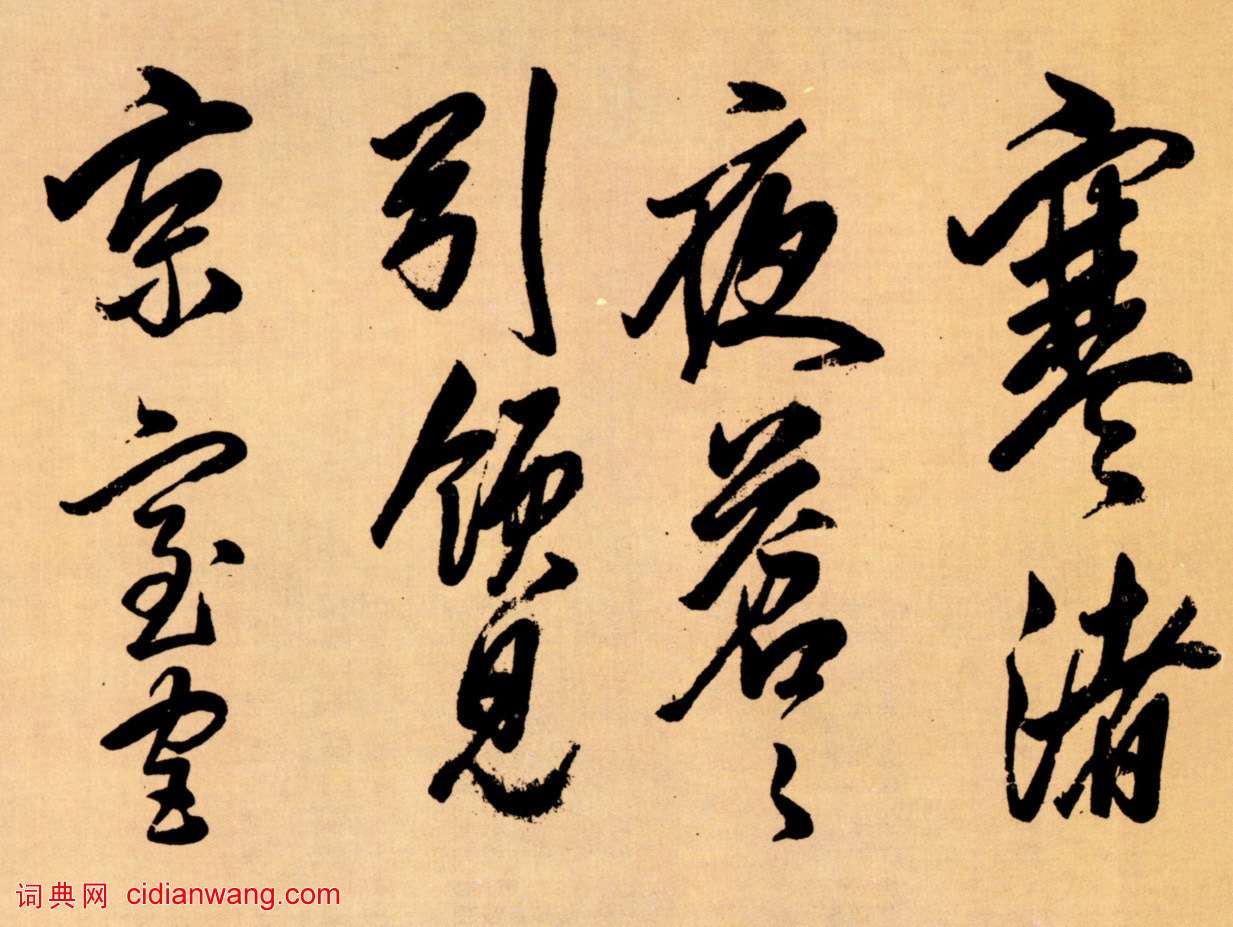 寒渚
夜蒼々
引領見
京室宮
词典网 cidianwang.com